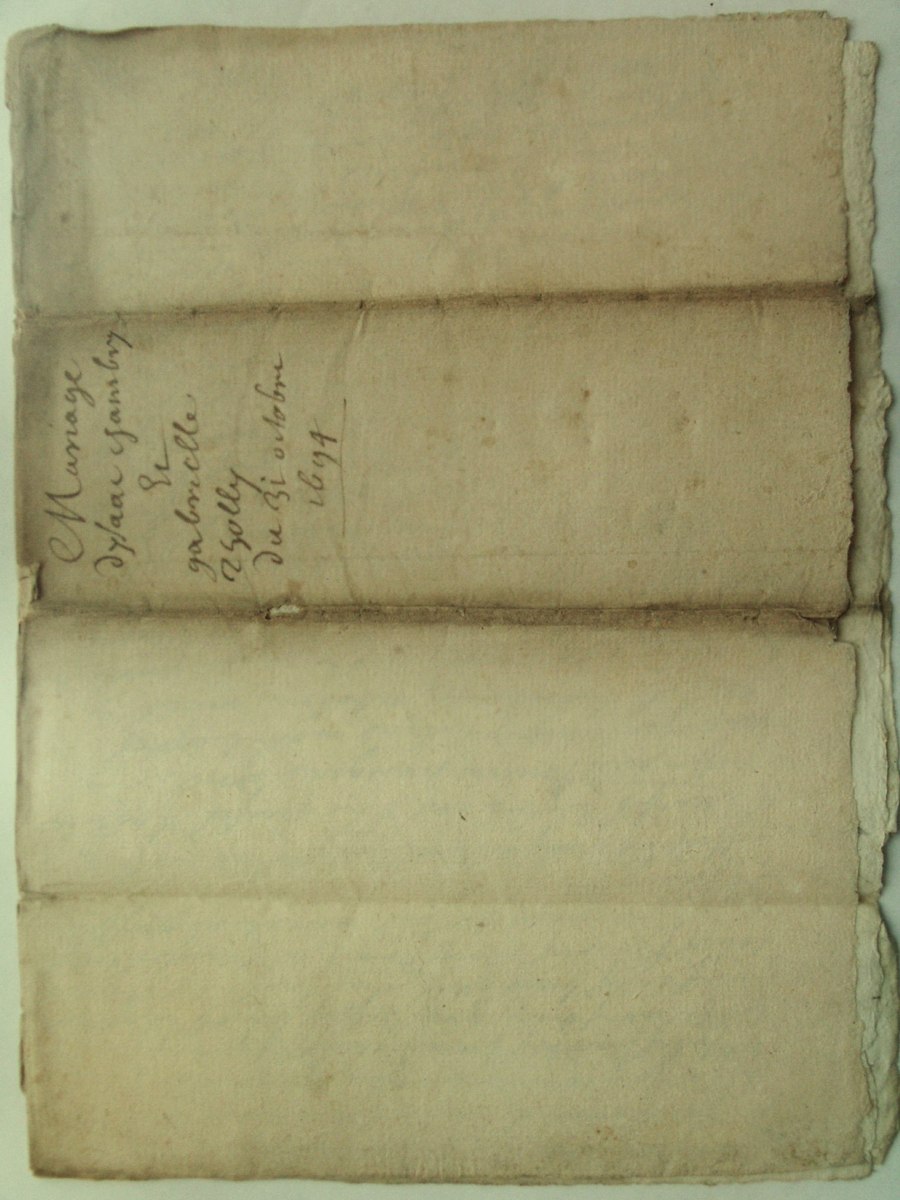 Mariage
dysaac chambry
Et
gabrielle
Tholly
du 31 octobre
1694